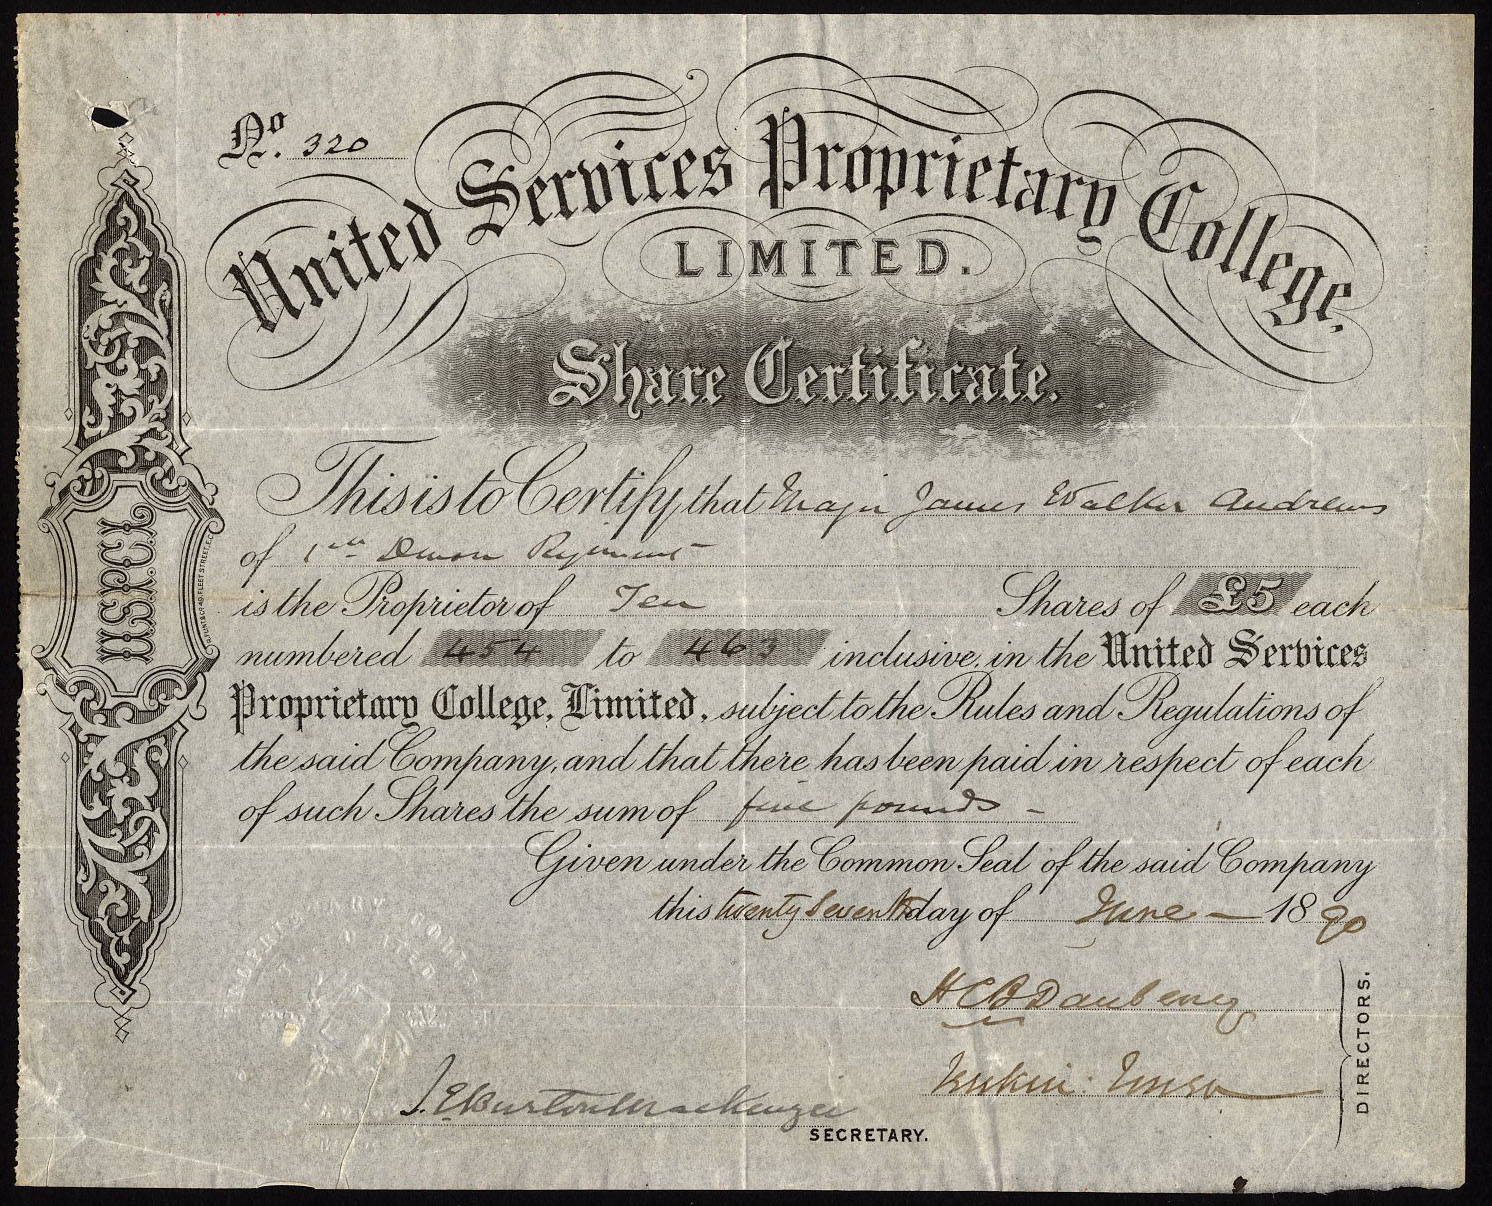 No. 320
United Services Proprietary College,
LIMITED.
Share Certificate.
This is to Certify that Major James Walker Andrews
of 1st Devon Regiment
is the Proprietor of Ten Shares of £5 each
numbered 454 to 463 inclusive, in the United Services
Proprietary College, Limited, subject to the Rules and Regulations of
the said Company, and that there has been paid in respect of each
of such Shares the sum of five pounds -
Given under the Common Seal of the said Company
this twenty seventh day of June - 1890
H C B Daubeney
DIRECTORS.
J. E. Burton Mackenzie
SECRETARY.
U.S.P.C.L.
FLEET STREET, E.C.